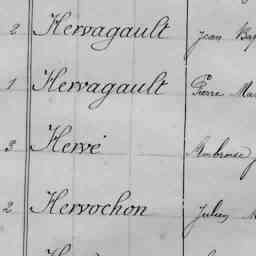 2 Hervagault Jean Bap
1 Hervagault Pierre Ma
3 Hervé Ambroise
2 Hervochon Julien